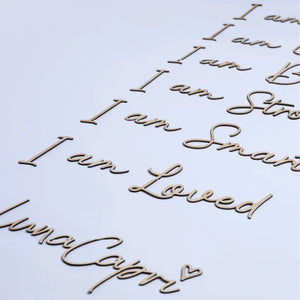 I am
I am
I am B
I am Stro
I am Smar
I am Loved
LunaCapri